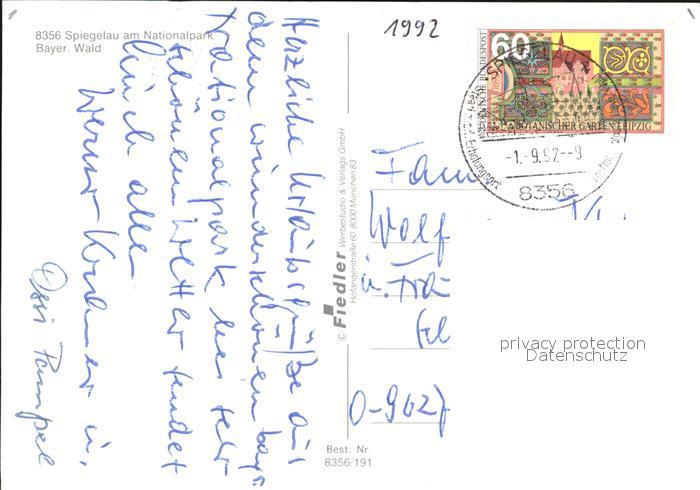 8356 Spiegelau am Nationalpark
Bayer. Wald
1992
Herzliche Urlaubsgrüße aus
dem wunderschönen bay.
Nationalpark bei sehr
schönem Wetter sendet
Euch allen
Werner u.
Ossi Pampel
© Fiedler Werbestudio & Verlags GmbH
Hofangerstraße 60 8000 München 83
DEUTSCHE BUNDESPOST
60
BOTANISCHER GARTEN LEIPZIG
SPIEGELAU
Erholungsort
-1.-9.92--9
8356
Fam
Wolf
u.
O-962
privacy protection
Datenschutz
Best. Nr.
8356/191